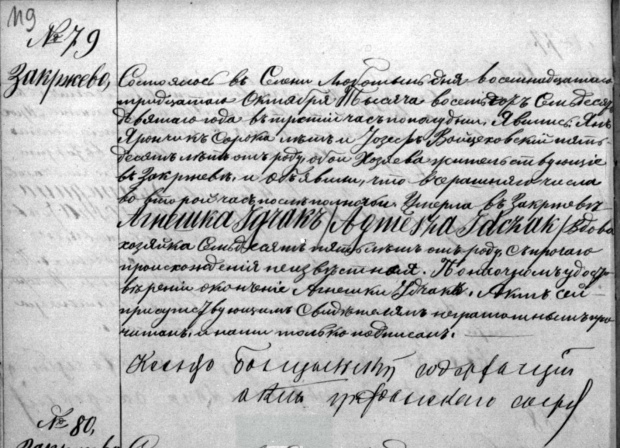 119
№79
Закржево,
Состоялось въ Селени Люботынь дня восемнадцатаго
тридцатаго Октября Тысяча восемьсотъ Семьдесятъ
девятаго года въ третій часъ пополудни. Явились Янъ
Ярончикъ Сорока лѣтъ и Іозефъ Войцеховскій пять-
десятъ лѣтъ отъ роду, обои Хозяева жительствующіе
въ Закржевѣ, и объявили, что вчерашняго числа
во второй часъ послѣ полночи. Умерла въ Закржевѣ
Агнешка Гдчакъ / вдова
хозяйка Семьдесятъ пять лѣтъ отъ роду, съ прочаго
происхожденія неизвѣстная. По наочномъ удосто-
вѣреніи окончаніе Агнешки Гдчакъ. Актъ сей
присутствующимъ Свидѣтелямъ неграмотнымъ про-
читанъ, и нами только подписанъ.
Ксендзъ содержащій
акты гражданскаго
№80,